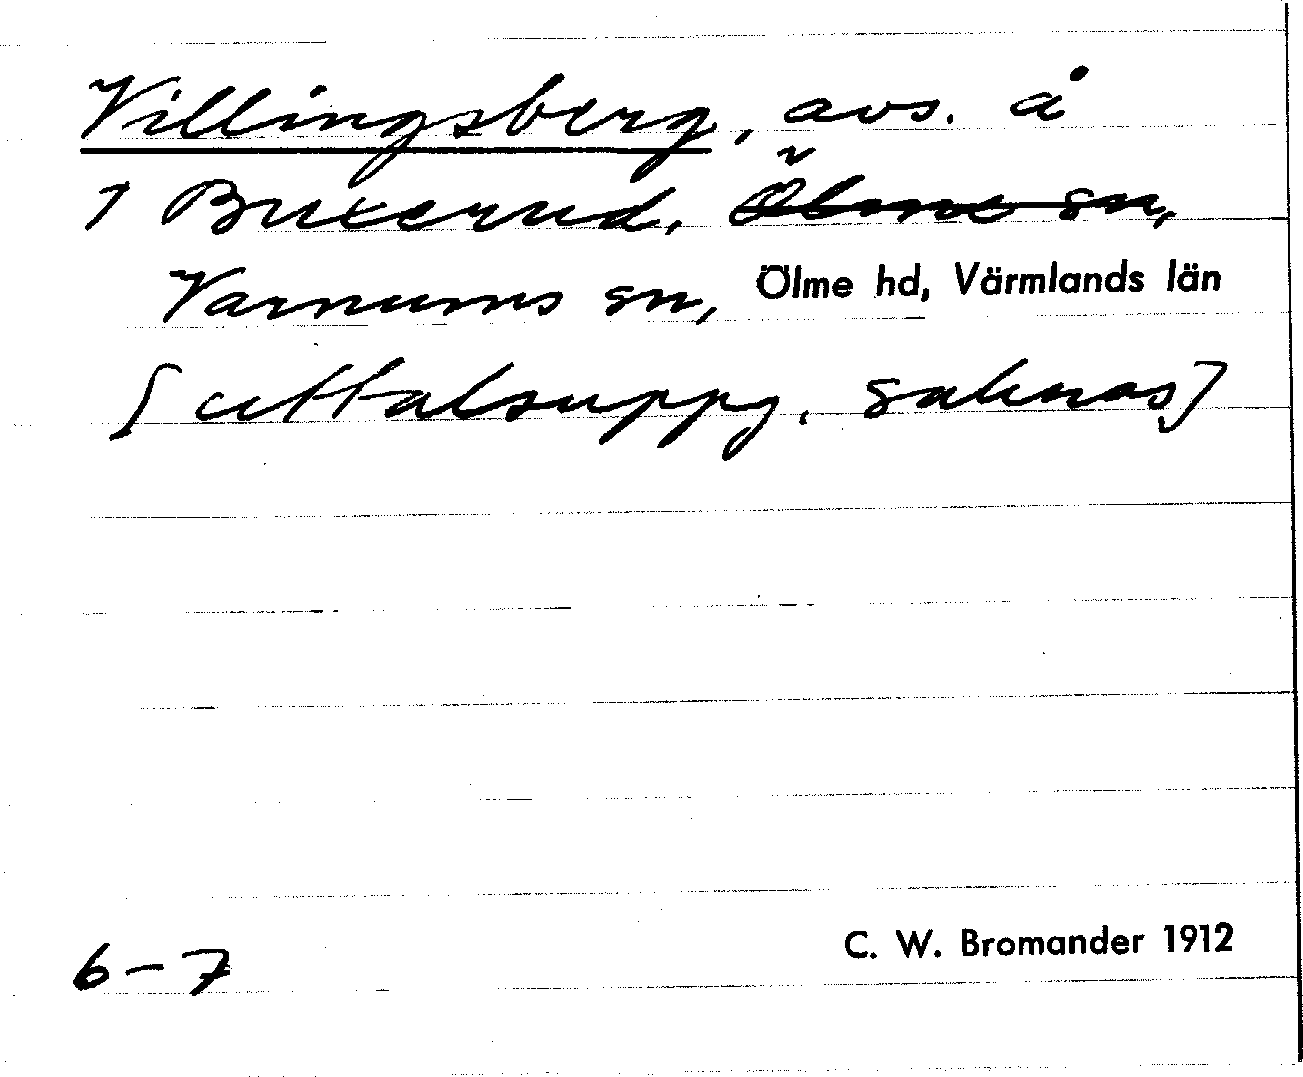 Villingsberg, avs. å
1 Buxerud, Ölme sn,
Varnums sn, Ölme hd, Värmlands län
[uttalsuppg. saknas]
C. W. Bromander 1912
6-7